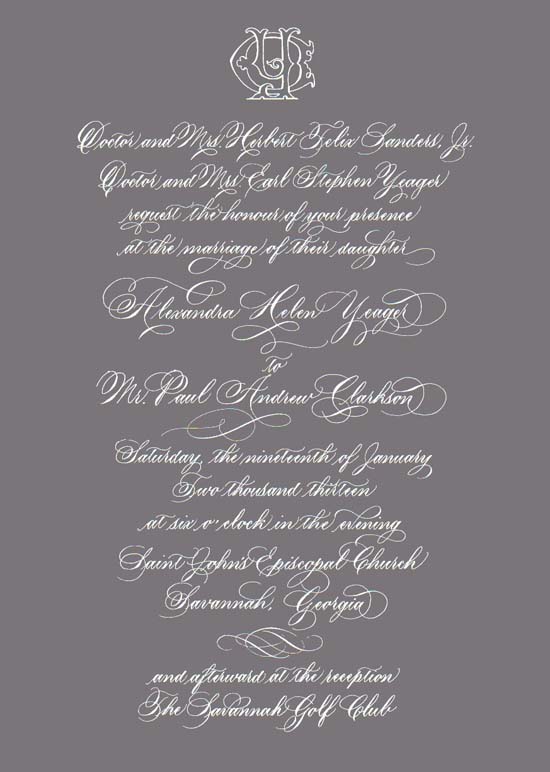 Doctor and Mrs. Herbert Felix Sanders, Jr.
Doctor and Mrs. Earl Stephen Yeager
request the honour of your presence
at the marriage of their daughter
Alexandra Helen Yeager
to
Mr. Paul Andrew Clarkson
Saturday, the nineteenth of January
Two thousand thirteen
at six o'clock in the evening
Saint John's Episcopal Church
Savannah, Georgia
and afterward at the reception
The Savannah Golf Club